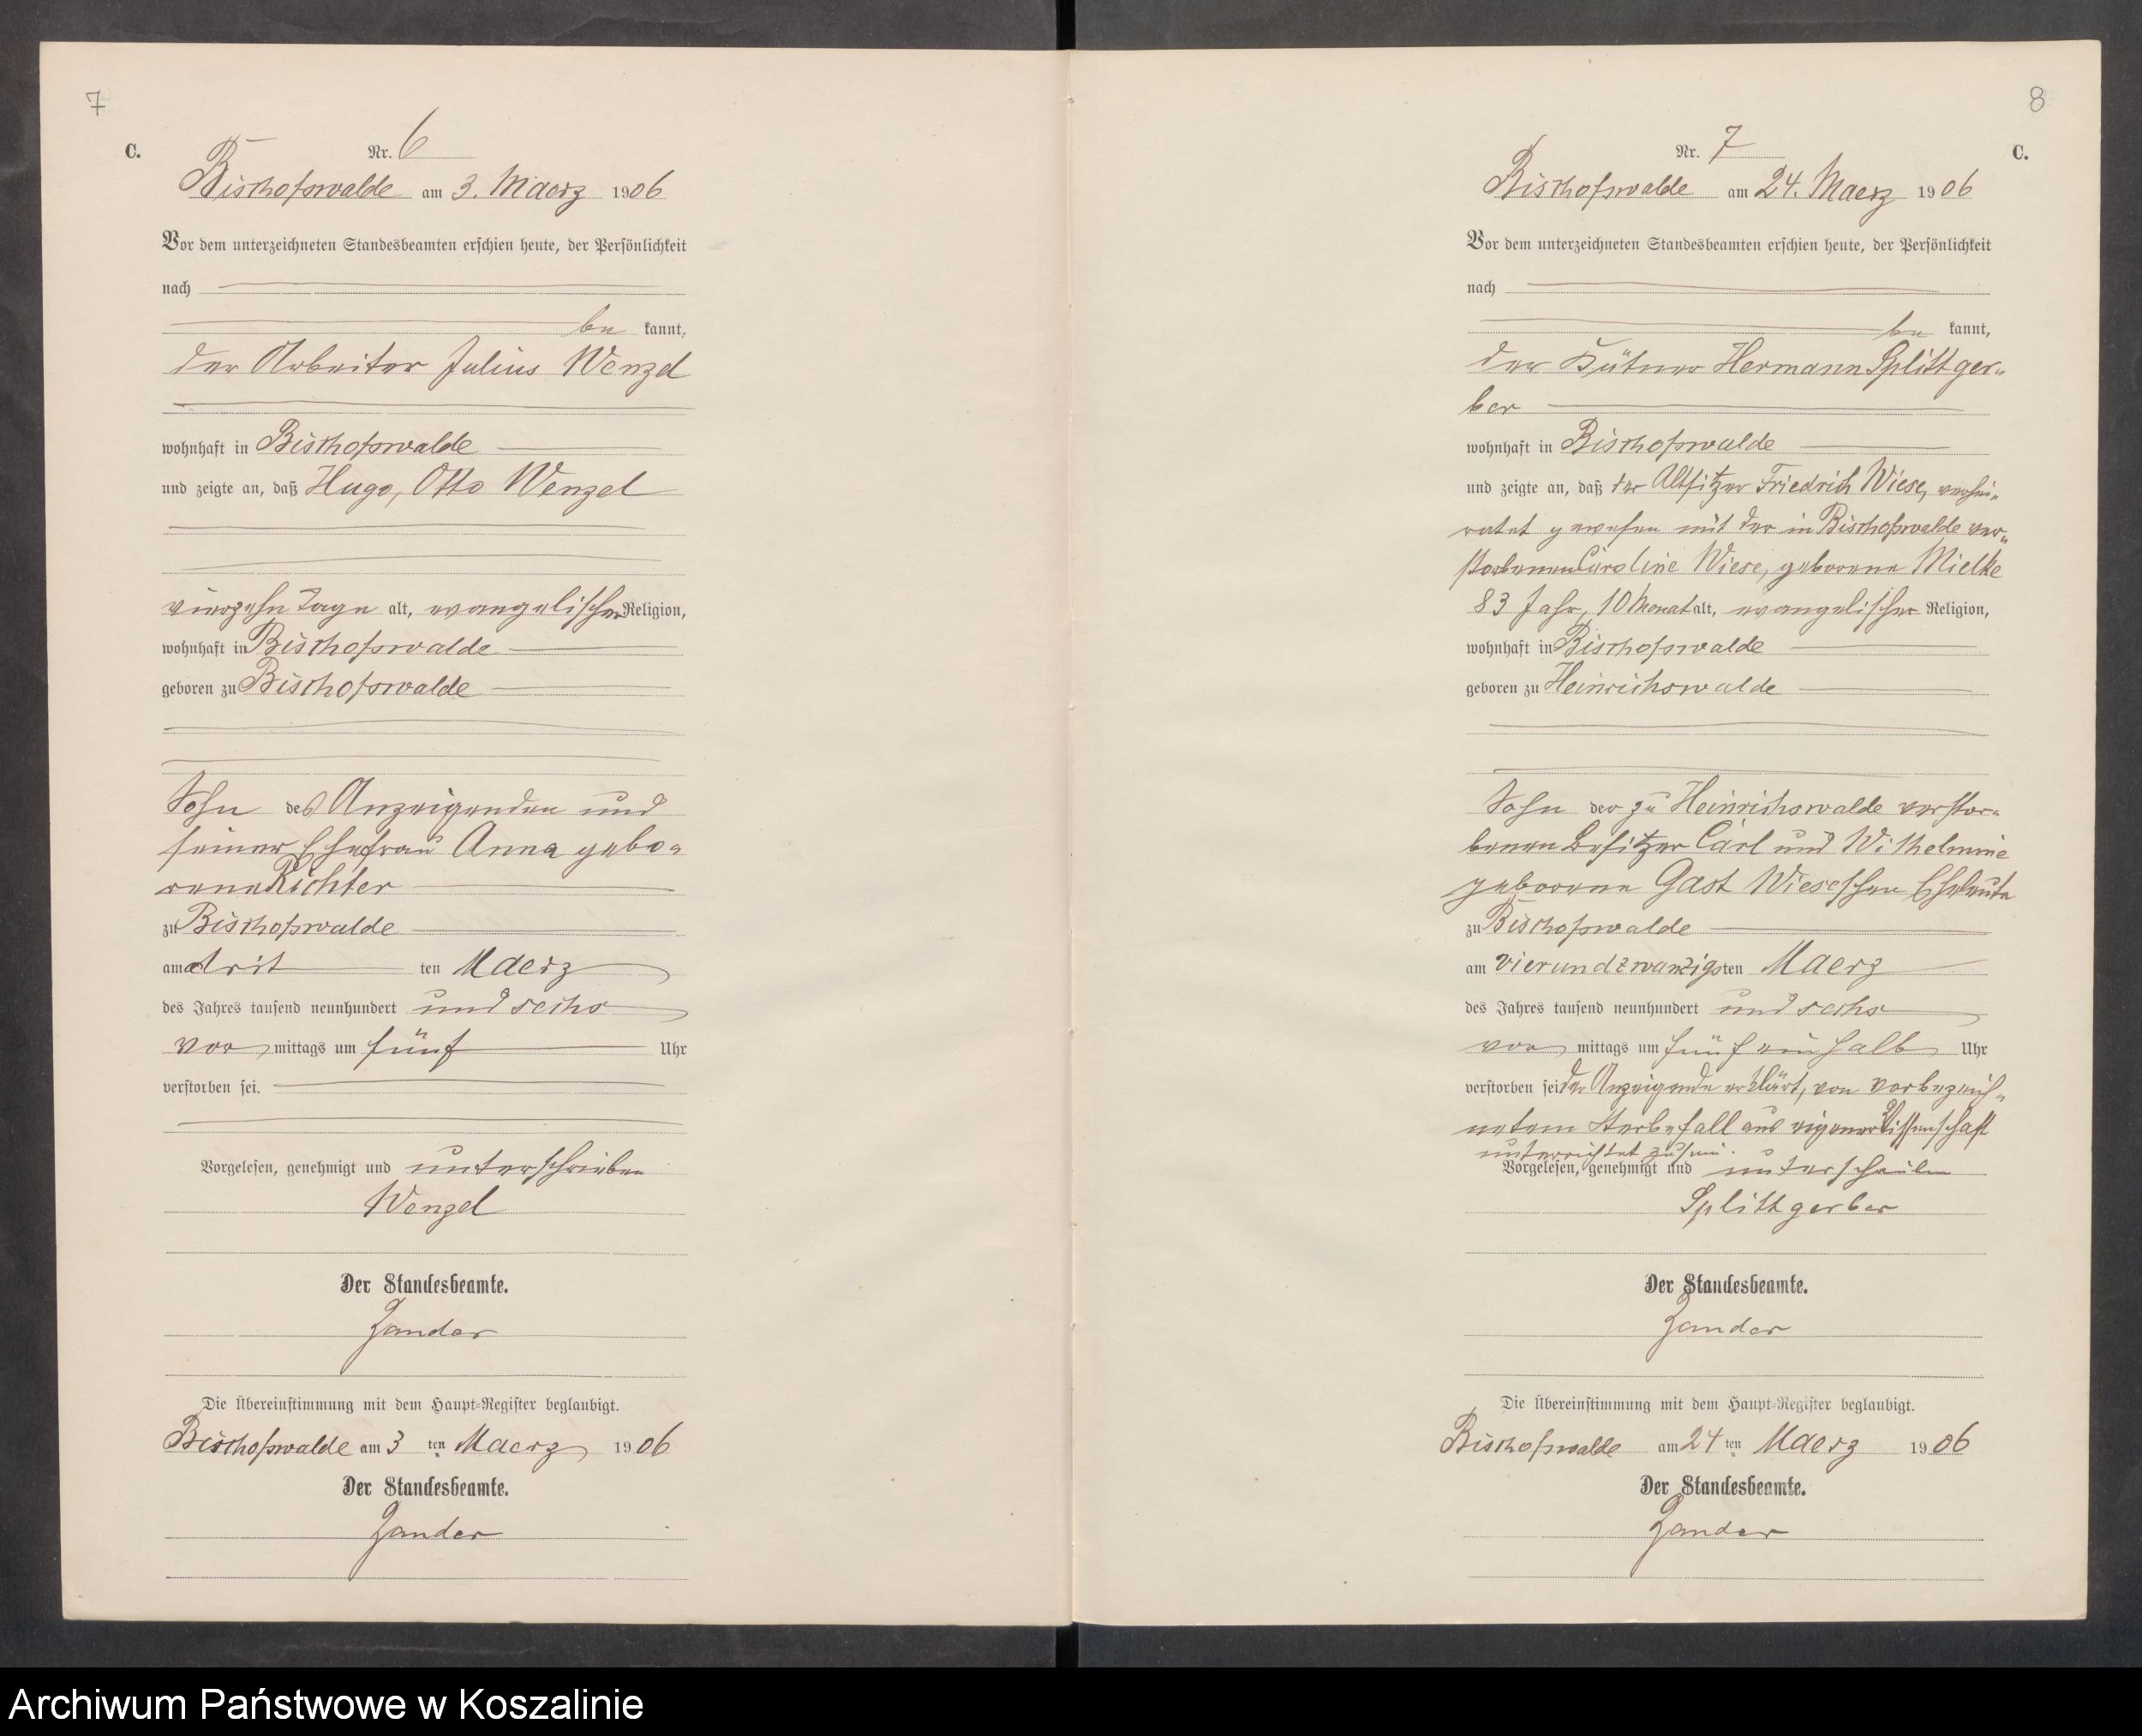 7
C.
Nr. 6
Bischofswalde am 3. Maerz 1906
Vor dem unterzeichneten Standesbeamten erschien heute, der Persönlichkeit
nach
be kannt,
der Arbeiter Julius Wenzel
wohnhaft in Bischofswalde
und zeigte an, daß Hugo, Otto Wenzel
vierzehn Tage alt, evangelischer Religion,
wohnhaft in Bischofswalde
geboren zu Bischofswalde
Sohn des Anzeigenden und
seiner Ehefrau Anna gebo=
rene Richter
zu Bischofswalde
am drit ten Maerz
des Jahres tausend neunhundert und sechs
vor mittags um fünf Uhr
verstorben sei.
Vorgelesen, genehmigt und unterschrieben
Wenzel
Der Standesbeamte.
Zander
Die Übereinstimmung mit dem Haupt=Register beglaubigt.
Bischofswalde am 3 ten Maerz 1906
Der Standesbeamte.
Zander
8
C.
Nr. 7
Bischofswalde am 24. Maerz 1906
Vor dem unterzeichneten Standesbeamten erschien heute, der Persönlichkeit
nach
be kannt,
der Bütner Hermann Splittger=
ber
wohnhaft in Bischofswalde
und zeigte an, daß der Altsitzer Friedrich Wiese, verhei=
ratet gewesen mit der in Bischofswalde ver=
storbenen Caroline Wiese, geborene Mielke
83 Jahr, 10 Monat alt, evangelischer Religion,
wohnhaft in Bischofswalde
geboren zu Heinrichswalde
Sohn der zu Heinrichswalde verstor=
benen Besitzer Carl und Wilhelmine
geborene Gast Wieseschen Eheleute
zu Bischofswalde
am vierundzwanzigsten Maerz
des Jahres tausend neunhundert und sechs
vor mittags um fünfeinhalb Uhr
verstorben sei der Anzeigende erklärt, von vorbezeich=
netem Sterbefall aus eigener Wissenschaft
unterrichtet zu sein.
Vorgelesen, genehmigt und unterschrieben
Splittgerber
Der Standesbeamte.
Zander
Die Übereinstimmung mit dem Haupt=Register beglaubigt.
Bischofswalde am 24 ten Maerz 1906
Der Standesbeamte.
Zander
Archiwum Państwowe w Koszalinie